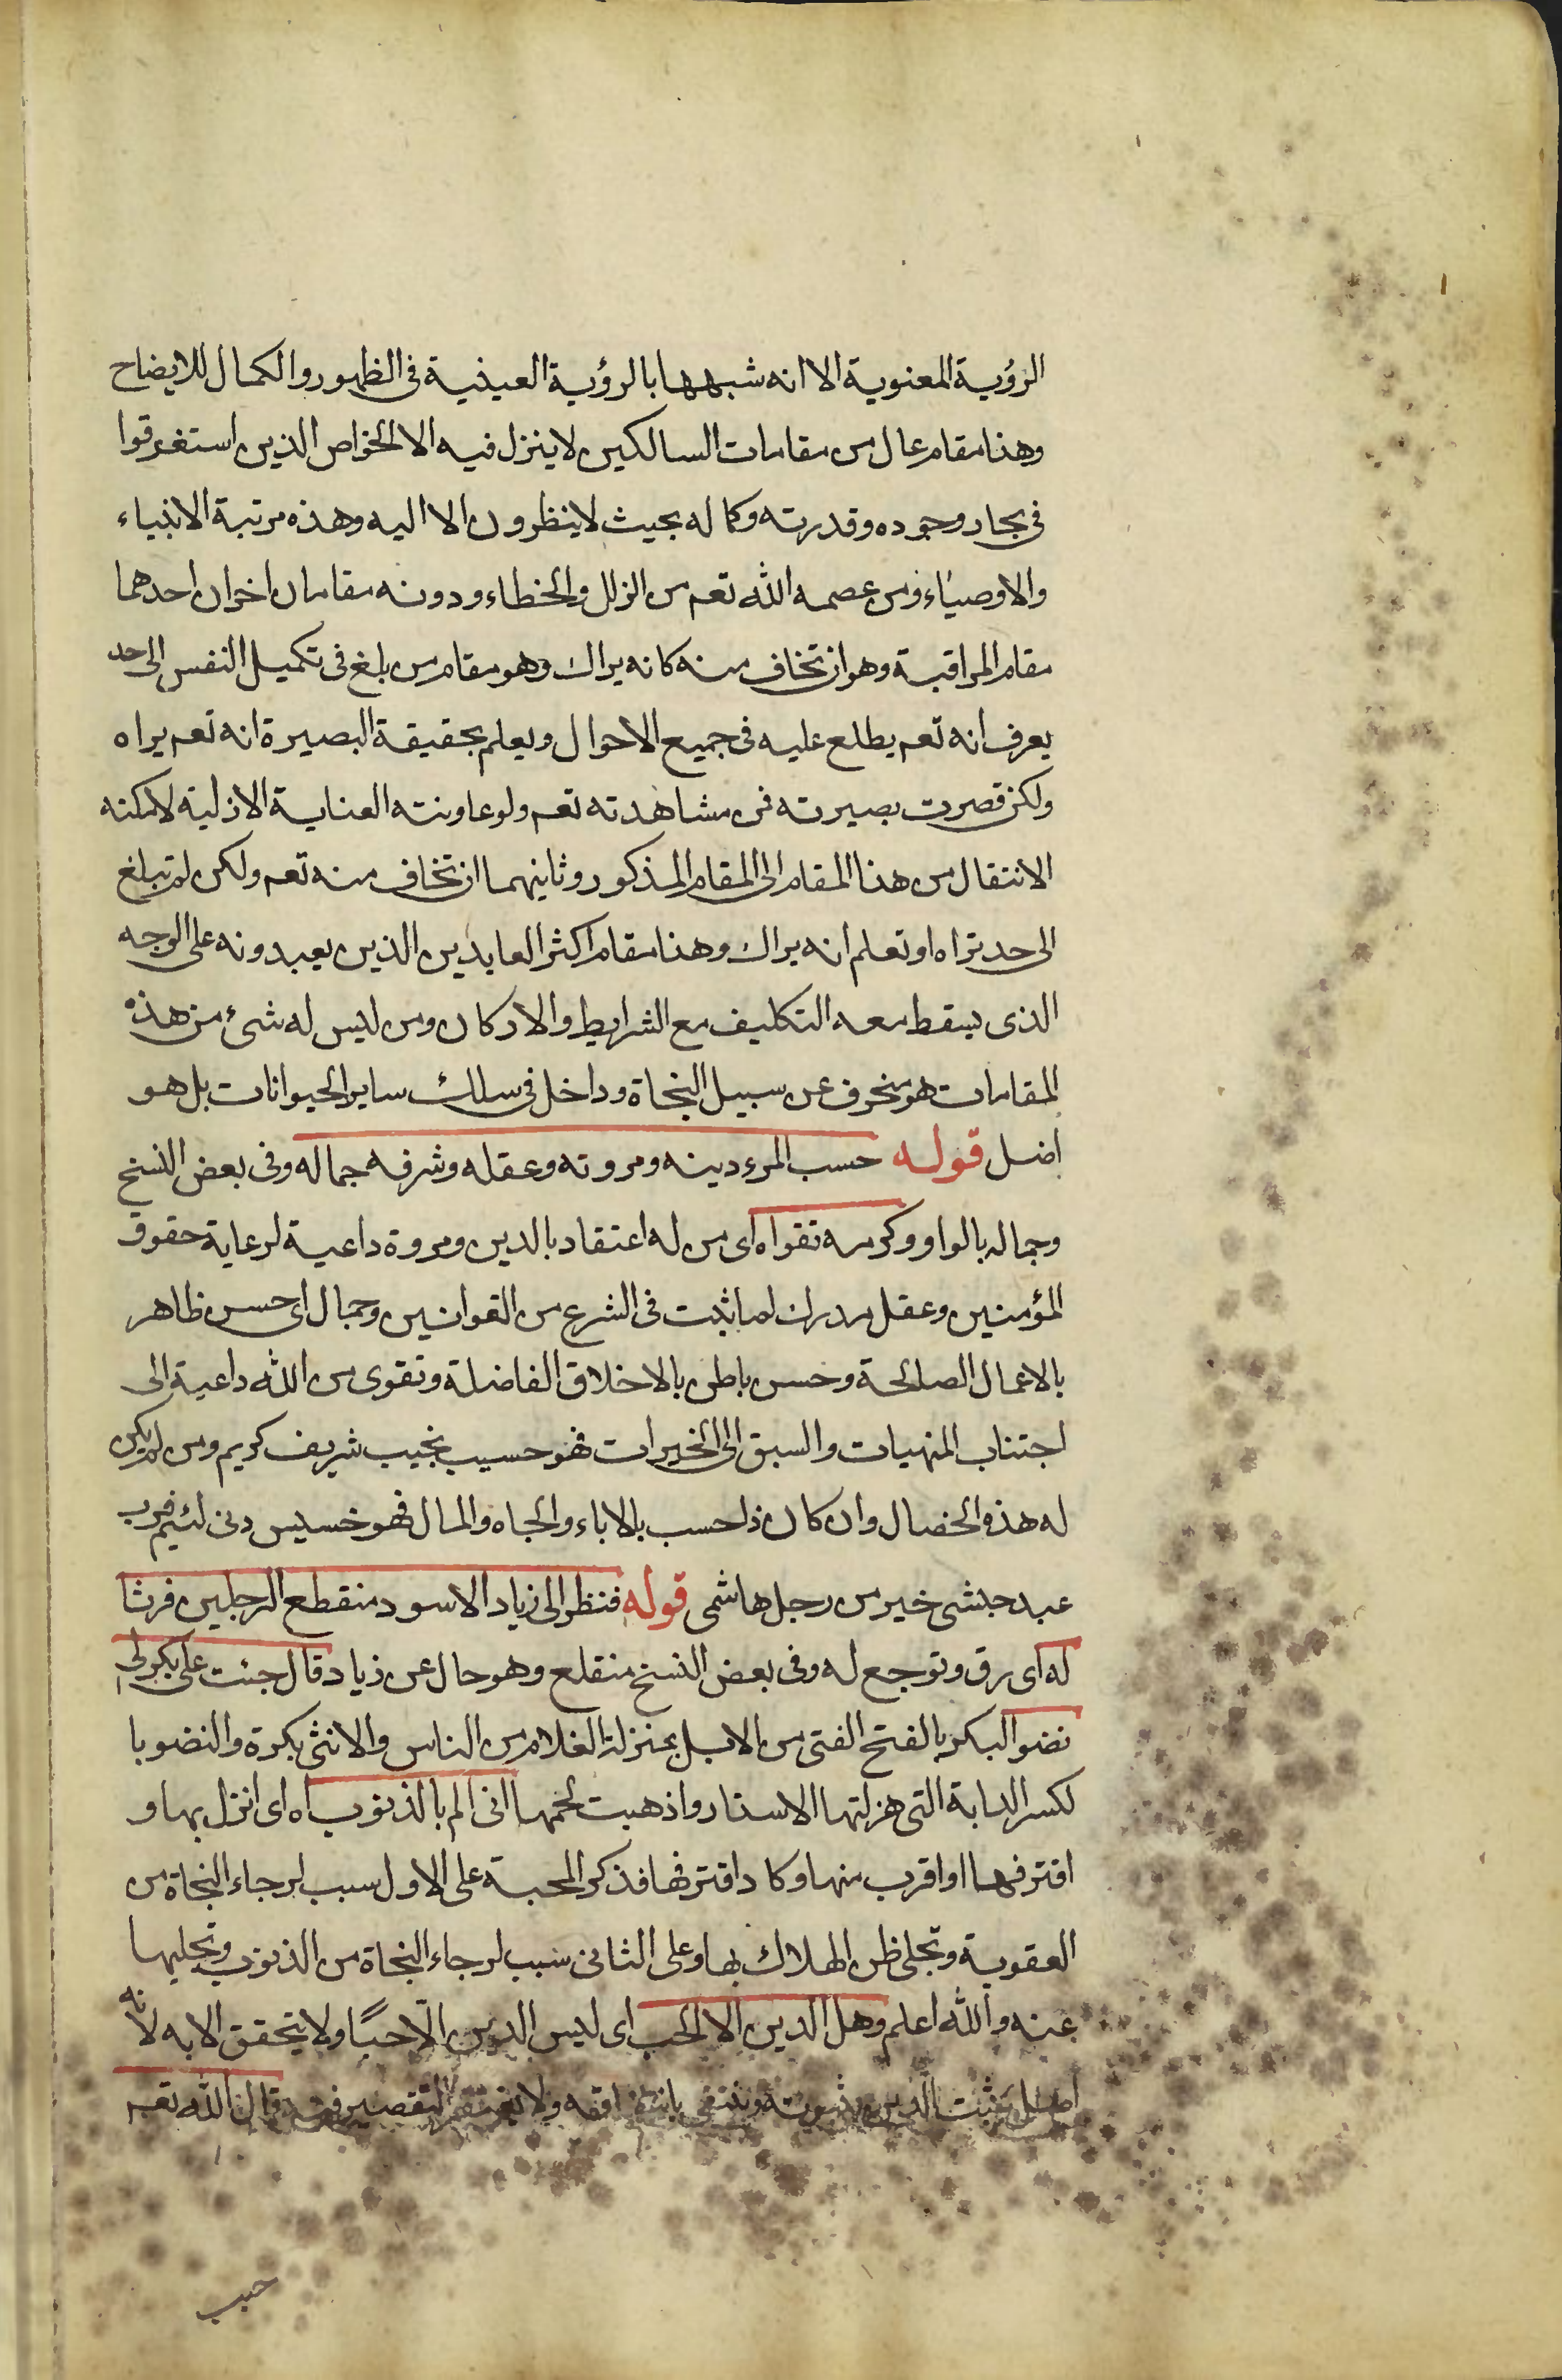 الرؤية المعنوية الا انه شبهها بالرؤية العينية فى الظهور والكمال للايضاح
وهذا مقام عال من مقامات السالكين لا ينزل فيه الا الخواص الذين استغرقوا
فى بحار وجوده وقدرته وكماله بحيث لا ينظرون الا اليه وهذه مرتبة الانبياء
والاوصياء ومن عصمه الله تعم من الزلل والخطاء ودونه مقامان اخران احدهما
مقام المراقبة وهو ان تخاف منه كانه يراك وهو مقام من بلغ فى تكميل النفس الى حد
يعرف انه تعم يطلع عليه فى جميع الاحوال ويعلم بحقيقة البصيرة انه تعم يراه
ولكن قصرت بصيرته فى مشاهدته تعم ولو عاونته العناية الازلية لامكنه
الانتقال من هذا المقام الى المقام المذكور وثانيهما ان تخاف منه تعم ولكن لم تبلغ
الى حد تراه او تعلم انه يراك وهذا مقام اكثر العابدين الذين يعبدونه على الوجه
الذى يسقط معه التكليف مع الشرايط والاركان ومن ليس له شىء من هذه
المقامات هو منحرف عن سبيل النجاة وداخل فى سلك ساير الحيوانات بل هو
اضل قوله حسب المرء دينه ومروته وعقله وشرفه جماله وفى بعض النسخ
وجماله بالواو وكرمه تقواه اى من له اعتقاد بالدين ومروة داعية لرعاية حقوق
المؤمنين وعقل مدرك لما ثبت فى الشرع من القوانين وجمال اى حسن ظاهر
بالاعمال الصالحة وحسن باطن بالاخلاق الفاضلة وتقوى من الله داعية الى
اجتناب المنهيات والسبق الى الخيرات فهو حسيب نجيب شريف كريم ومن لم يكن
له هذه الخصال وان كان ذا حسب بالاباء والجاه والمال فهو خسيس دنى لئيم فرب
عبد حبشى خير من رجل هاشمى قوله فنظر الى زياد الاسود منقطع الرجلين فرثا
له اى رق وتوجع له وفى بعض النسخ منقلع وهو حال عن زياد قال جئت على بكر لى
نضو البكر بالفتح الفتى من الابل بمنزلة الغلام من الناس والانثى بكرة والنضو با
لكسر الدابة التى هزلتها الاسفار واذهبت لحمها انى الم بالذنوب اه اى انزل بها و
اقترفها او اقرب منها وكاد اقترفها فذكر المحبة على الاول سبب لرجاء النجاة من
العقوبة وتجلى ظن الهلاك بها وعلى الثانى سبب لرجاء النجاة من الذنوب وتجليها
عنه والله اعلم وهل الدين الا الحب اى ليس الدين الّا حبّا ولا يتحقق الا به لانه
اصل يثبت الدين بثبوته وينتفى بانتفائه ولا التقصير فيه قال الله تعم
حبب